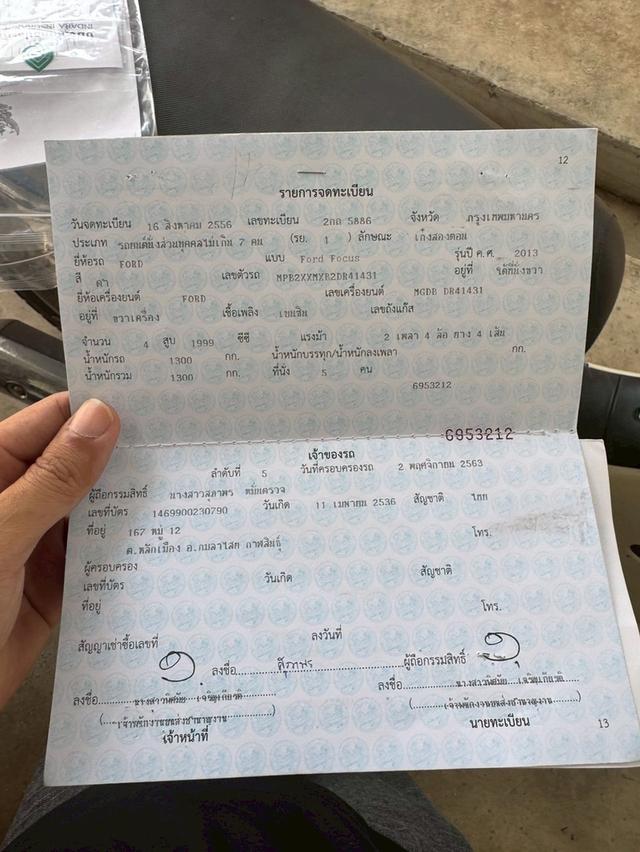 12
รายการจดทะเบียน
วันจดทะเบียน 16 สิงหาคม 2556 เลขทะเบียน 2กถ 5886 จังหวัด กรุงเทพมหานคร
ประเภท รถยนต์นั่งส่วนบุคคลไม่เกิน 7 คน (รย. 1 ) ลักษณะ เก๋งสองตอน
ยี่ห้อรถ FORD แบบ Ford Focus รุ่นปี ค.ศ. 2013
สี ดำ เลขตัวรถ MPB2XXMXB2DR41431 อยู่ที่ ใต้ที่นั่งขวา
ยี่ห้อเครื่องยนต์ FORD เลขเครื่องยนต์ MGDB DR41431
อยู่ที่ ขวาเครื่อง เชื้อเพลิง เบนซิน เลขถังแก๊ส
จำนวน 4 สูบ 1999 ซีซี แรงม้า 2 เพลา 4 ล้อ ยาง 4 เส้น
น้ำหนักรถ 1300 กก. น้ำหนักบรรทุก/น้ำหนักลงเพลา กก.
น้ำหนักรวม 1300 กก. ที่นั่ง 5 คน
6953212
6953212
เจ้าของรถ
ลำดับที่ 5 วันที่ครอบครองรถ 2 พฤศจิกายน 2563
ผู้ถือกรรมสิทธิ์ นางสาวสุภาพร
เลขที่บัตร 1469900230790 วันเกิด 11 เมษายน 2536 สัญชาติ ไทย
ที่อยู่ 167 หมู่ 12 โทร.
ต.หลักเมือง อ.กมลาไสย กาฬสินธุ์
ผู้ครอบครอง
เลขที่บัตร วันเกิด สัญชาติ
ที่อยู่ โทร.
สัญญาเช่าซื้อเลขที่ ลงวันที่
ลงชื่อ สุภาพร ผู้ถือกรรมสิทธิ์
ลงชื่อ นางสาว ลงชื่อ นางสาว
(เจ้าพนักงานขนส่งชำนาญงาน) (เจ้าพนักงานขนส่งชำนาญงาน)
เจ้าหน้าที่ นายทะเบียน
13